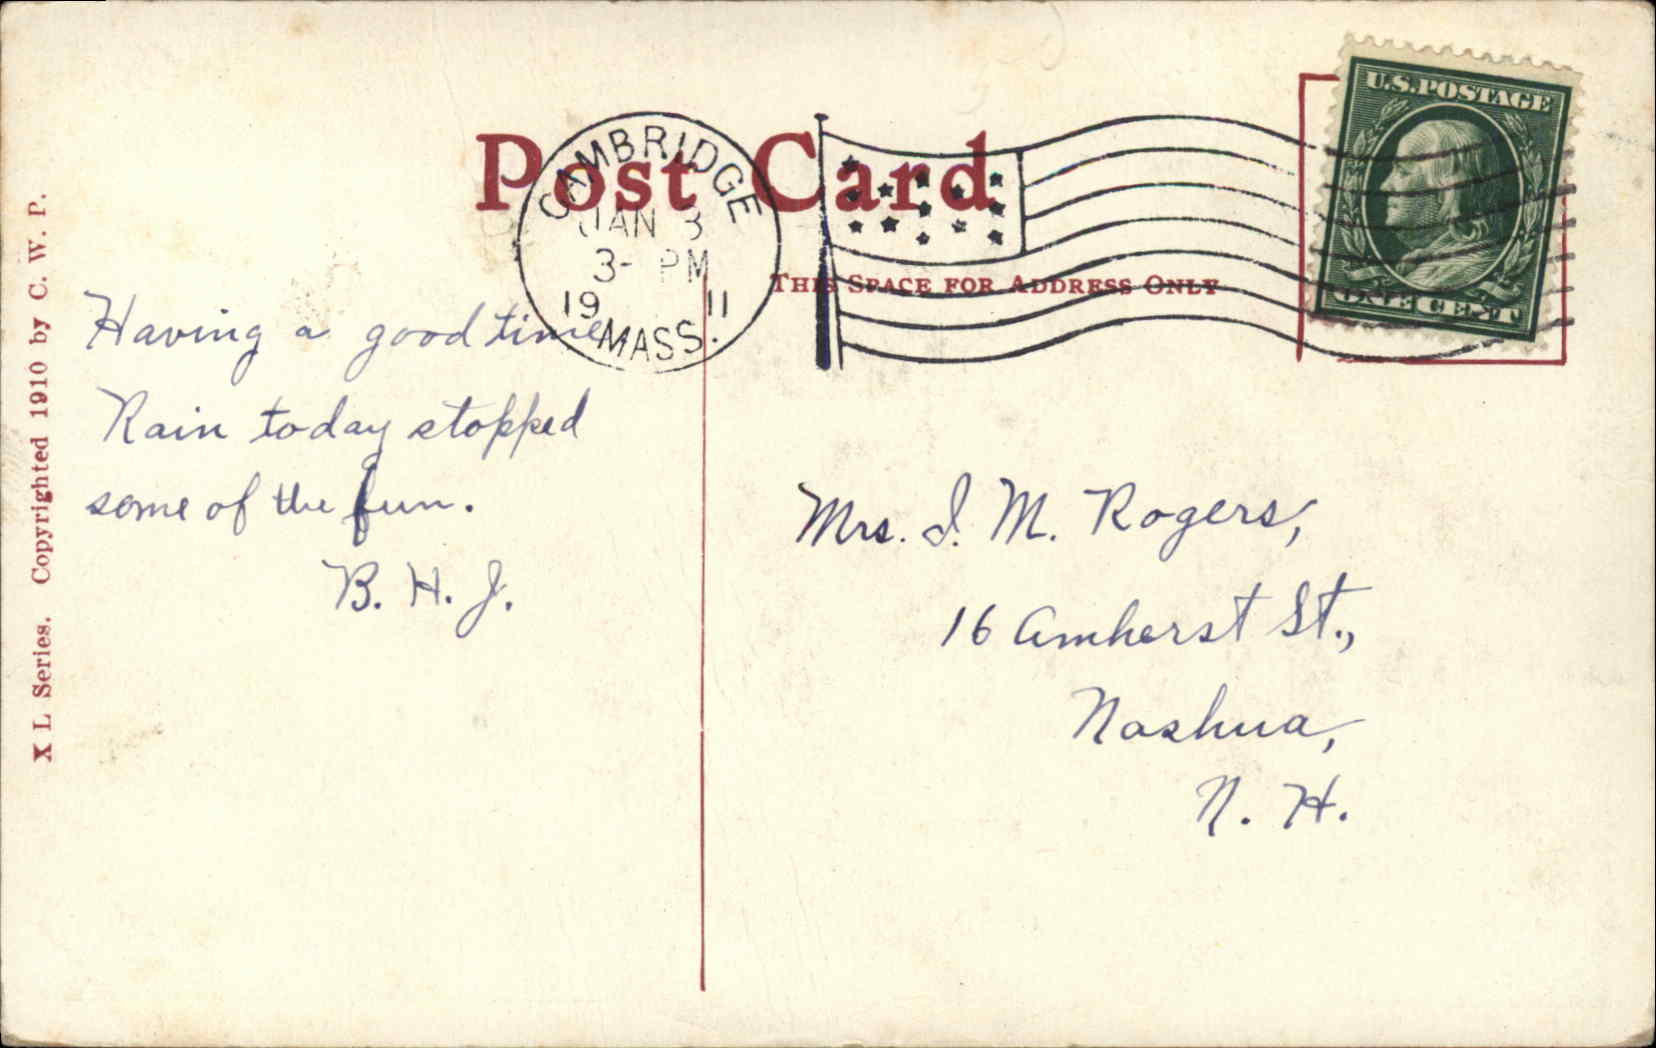 Post Card
CAMBRIDGE
JAN 3
3- PM
19 11
MASS.
THIS SPACE FOR ADDRESS ONLY
U.S. POSTAGE
ONE CENT
X L Series. Copyrighted 1910 by C. W. P.
Having a good time
Rain today stopped
some of the fun.
B. H. J.
Mrs. I. M. Rogers,
16 Amherst St.,
Nashua,
N. H.